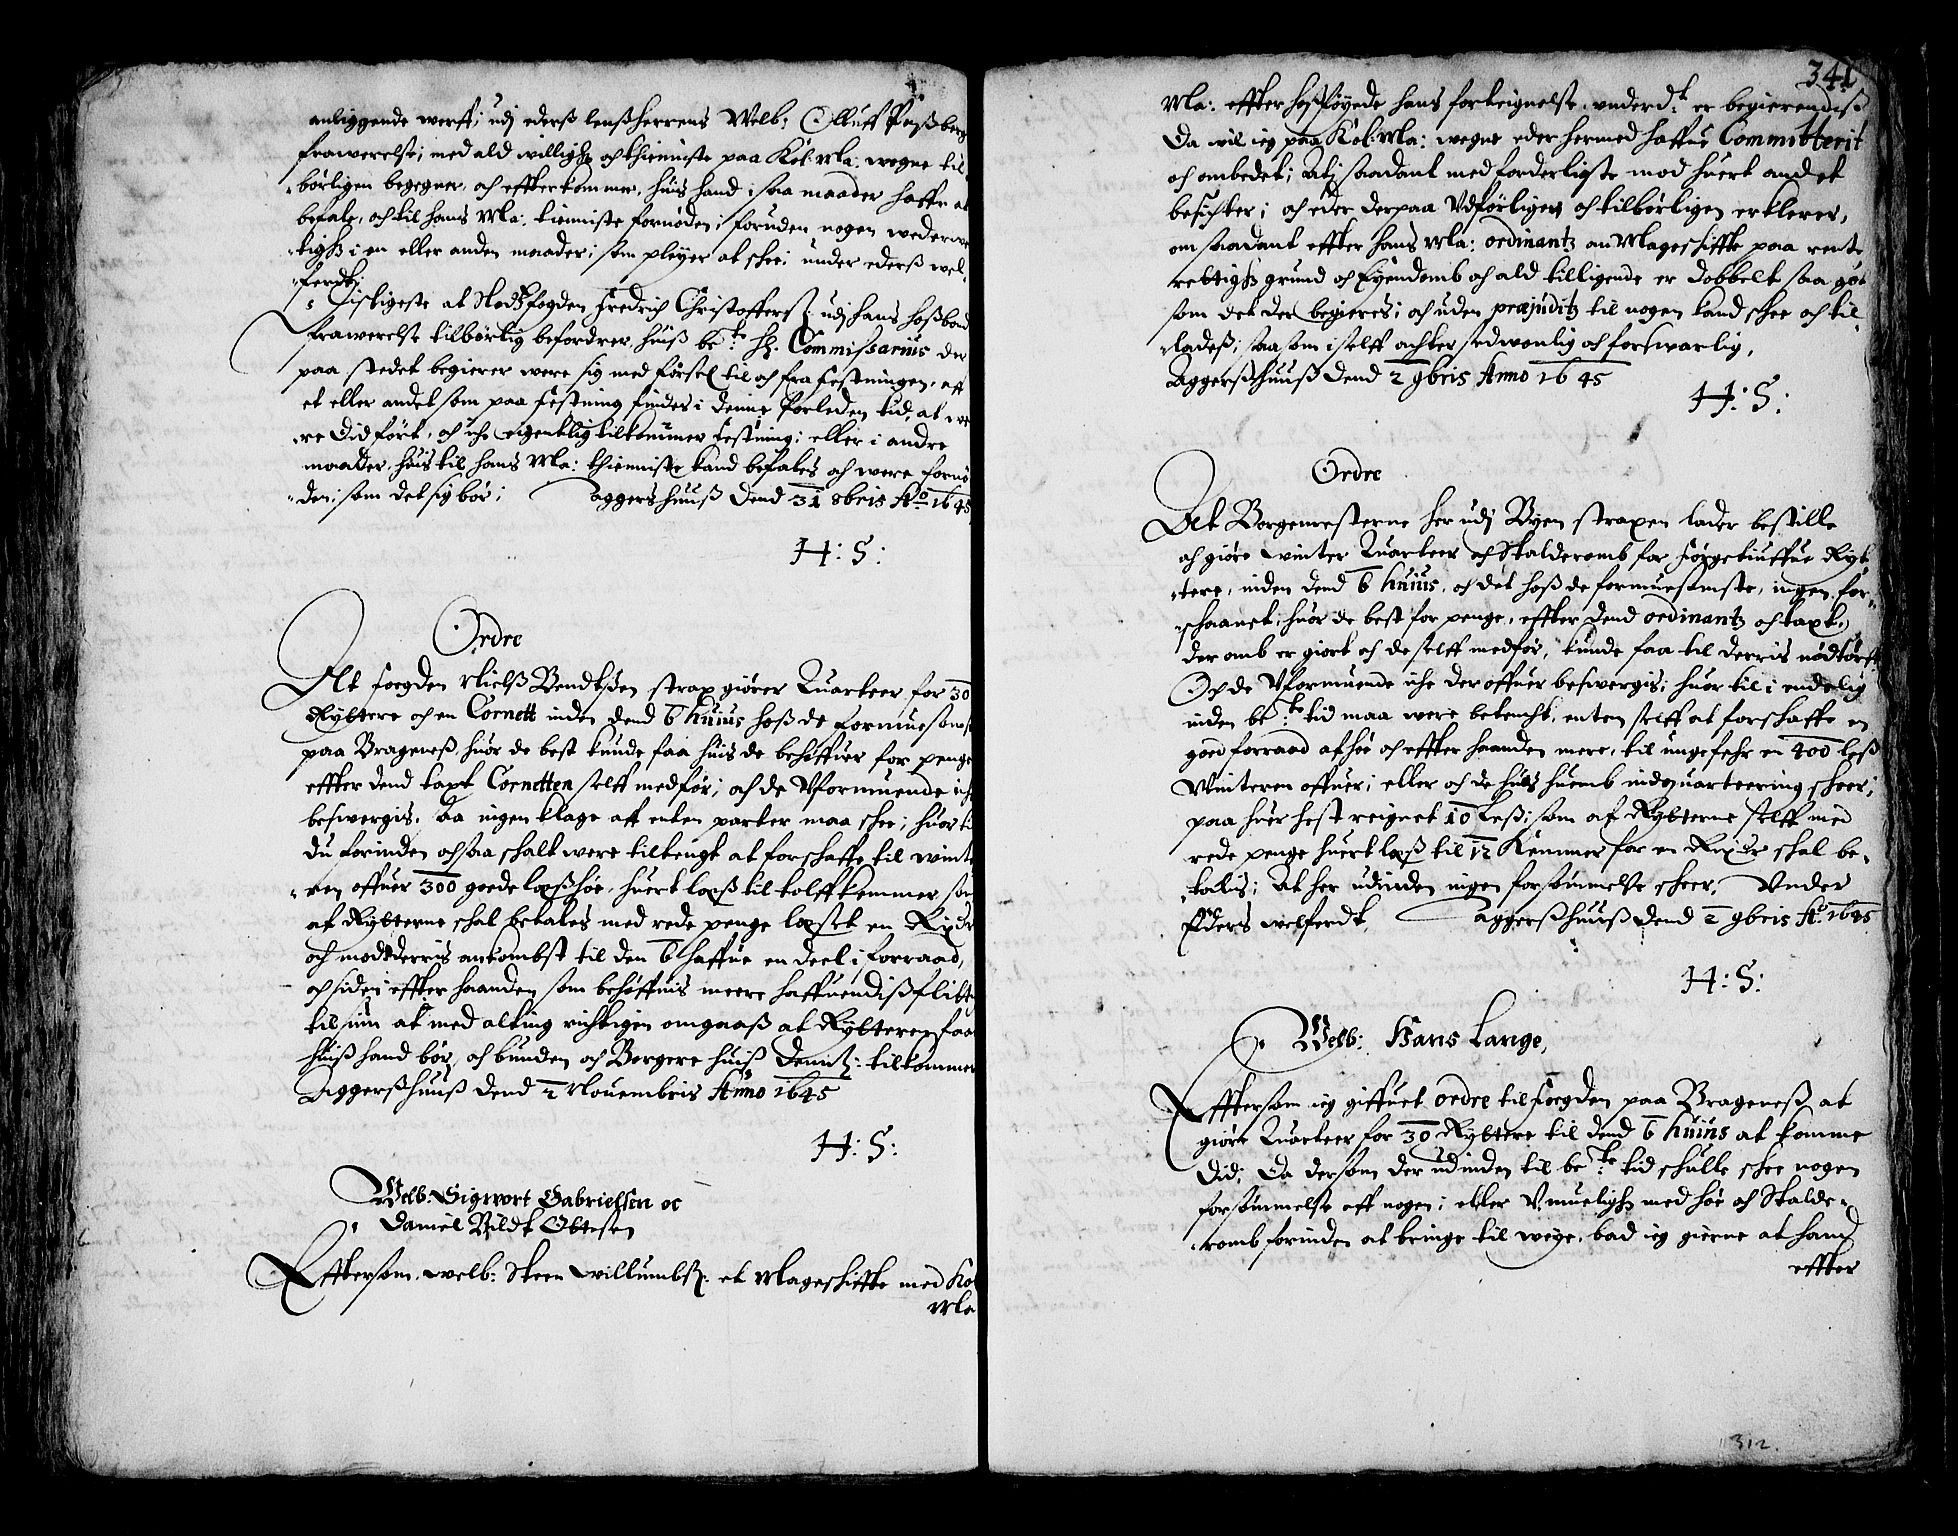 anliggende werff; udj ederß lenßherrens Welb: Olluff Parßberg
frawerelse; med ald willigh: och thienniste paa Kol: Ma: wegne til
børligen begegner, och effterkommer, huis hand i saa maader haffr at
befale, och til hans Ma: tienniste fornøden; foruden nogen wederwer
tigh: i en eller anden maader; som pleyer at schee; under ederß wel,
ferdt;
Disligeste at Slodtzfogden Fredrich Christofferß: udj hans hoßbond
frawerelse tilbørlig befordrer, huiß be:te H: Commissarius der
paa stedet begierer were sig med førsel til och fra Festningen, aff
et eller andet som paa Festning findes i denne forleden tid, at we
re did ført, och iche eigentlig tilkommer Festning; eller i andre
maader, huis til hans Ma: thienniste kand befales och were fornø
den; som det sig bør; Aggershuuß dend 31 8bris Ao 1645
H: S:
Ordre
At foegden Nielß Bendtßen strax giører Quarteer for 30
Ryttere och en Cornett inden dend 6 huius hoß de formuesomste
paa Brageneß, huor de best kunde faa huis de behøffuer for penge
effter dend taxt Cornetten selff medfør; och de Vformuende iche
beswergis, Saa ingen klage aff enten parter maa schee; huor til
du forinden ochsaa schalt were tiltengt at forschaffe til winte
ren offuer 300 goede læß høe, huert læß til tolff kemmer som
af Rytterne schal betales med rede penge læset en Rixdr
och mod derris ankombst til den 6 haffue en deel i forraad,
och siden effter haanden som behøffuis meere haffuendiß flittig
tilsiun at med alting richtigen omgaaß at Rytteren faar
huiß hand bør, och bunden och Borgere huiß dennß: tilkommer
Aggerßhuuß dend 2 Nouembris Anno 1645
H: S:
Welb: Sigwort Gabrielsen oc
Daniel Bildt Ottesen
Efftersom, welb: Steen Willumbß: et Mageschiffte med Kol
Ma
341
Ma: effter hoßføyede hans forteignelse, underd:t er begierendiß
Da wil ieg paa Kol: Ma: wegne eder hermed haffue Committerit
och ombedet; Atj saadant med forderligste mod huert andet
besichter; och eder derpaa Udførligen och tilbørligen erklerer,
om saadant effter hans Ma: ordinantz om Mageschiffte paa rente
rettigh: grund och Eyendomb och ald tilligende er dobbelt saa got
som det der begieres; och uden præjuditz til nogen kand schee och til
ladeß; saa som i selff achter sedwonlig och forswarlig,
Aggerßhuuß dend 2 9bris Anno 1645
H: S:
Ordre
At Borgemesterne her udj Byen straxen lader bestille
och giøre winter Quarteer och Stalderomb for førgetiuffue Ryt
tere, inden dend 6 huius, och det hoß de formuesomste, ingen for
schaanet, huor de best for penge, effter dend ordinantz och taxt,
der omb er giort och de selff medfør, kunde faa til derris nødtørft
Och de Vformuende iche der offuer beswergis; huor til i endelig
inden be:te tid maa were betencht, enten selff at forschaffe en
goed forraad af høe och effter haanden mere, til ungefehr en 400 leß
Winteren offuer; eller och de huis huemb indquarteering scheer;
paa huer hest reignet 10 leß; som af Rytterne selff med
rede penge huert læß til 12 Kemmer for en Rixdr schal be
talis; At her udinden ingen forsømmelse scheer, Under
Eders welferdt, Aggerßhuuß dend 2 9bris Ao 1645
H: S:
Welb: Hans Lange,
Efftersom ieg giffuet ordre til foegden paa Brageneß at
giøre Quarteer for 30 Ryttere til dend 6 huius at komme
did; Da dersom der udinden til be:te tid schulle schee nogen
forsømmelse aff nogen; eller Vmueligh: med høe och Stalde
romb forinden at bringe til weye, bad ieg gierne at hand
effter
312.